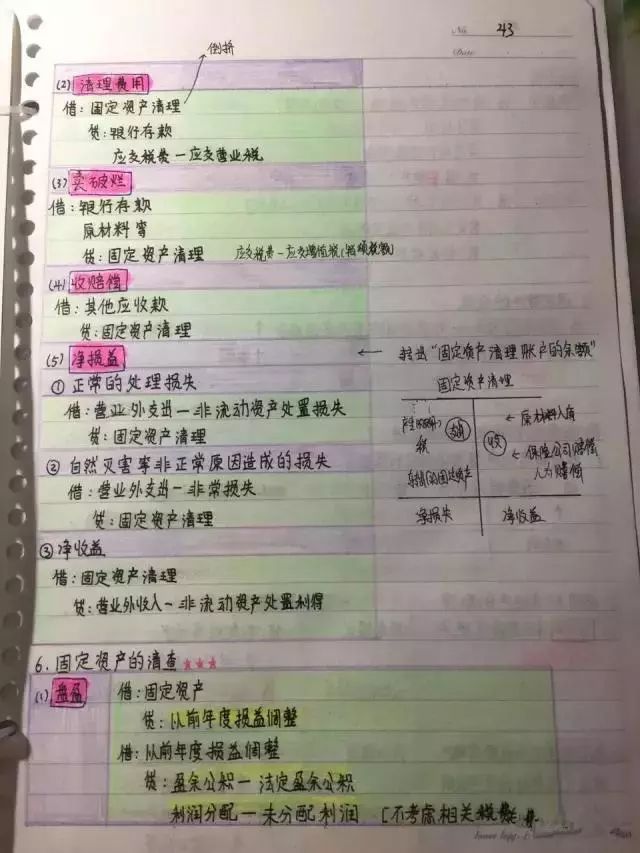 No. 43
Date
倒挤
(2) 清理费用
借:固定资产清理
贷:银行存款
应交税费—应交营业税
(3) 卖破烂
借:银行存款
原材料等
贷:固定资产清理 应交税费—应交增值税(销项税额)
(4) 收赔偿
借:其他应收款
贷:固定资产清理
(5) 净损益 ← 转出"固定资产清理账户的余额"
① 正常的处理损失
借:营业外支出—非流动资产处置损失
贷:固定资产清理
② 自然灾害等非正常原因造成的损失
借:营业外支出—非常损失
贷:固定资产清理
③ 净收益
借:固定资产清理
贷:营业外收入—非流动资产处置利得
固定资产清理
税
收
← 原材料入库
← 保险公司赔偿
人为赔偿
净损失 净收益
6. 固定资产的清查 ★★★
(1) 盘盈
借:固定资产
贷:以前年度损益调整
借:以前年度损益调整
贷:盈余公积—法定盈余公积
利润分配—未分配利润 [不考虑相关税费